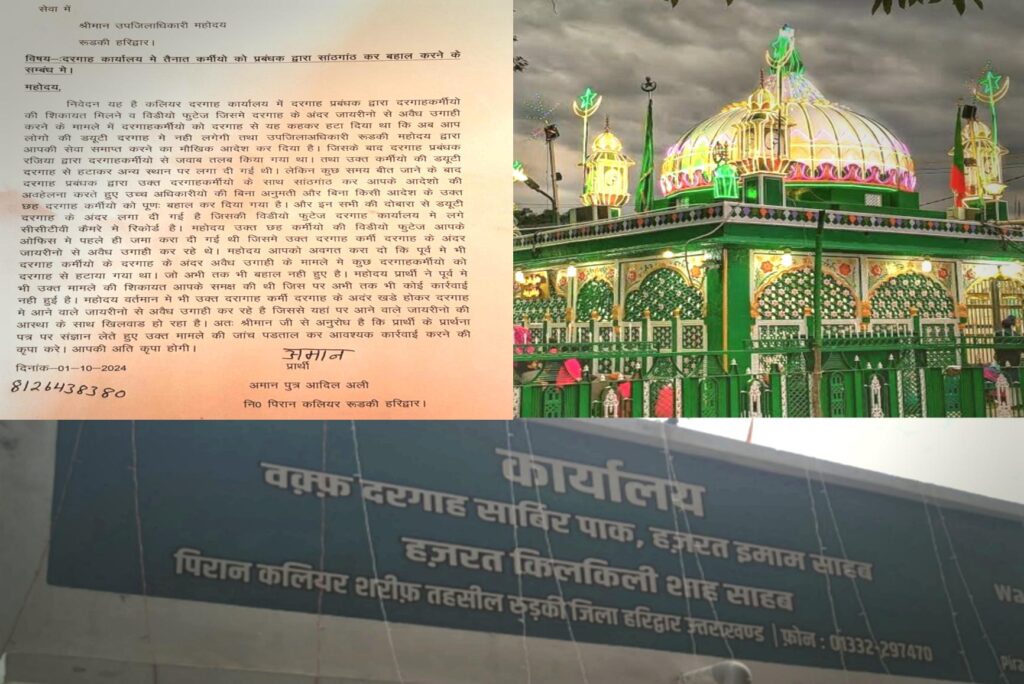 सेवा में
श्रीमान उपजिलाधिकारी महोदय
रूडकी हरिद्वार।
विषय–:दरगाह कार्यालय मे तैनात कर्मीयो को प्रबंधक द्वारा सांठगांठ कर बहाल करने के
सम्बंध मे।
महोदय,
निवेदन यह है कलियर दरगाह कार्यालय में दरगाह प्रबंधक द्वारा दरगाहकर्मीयो
की शिकायत मिलने व विडीयो फुटेज जिसमे दरगाह के अंदर जायरीनो से अवैध उगाही
करने के मामले में दरगाहकर्मीयो को दरगाह से यह कहकर हटा दिया था कि अब आप
लोगो की डयूटी दरगाह मे नही लगेगी तथा उपजिलाधिकारी रूडकी महोदय द्वारा
आपकी सेवा समाप्त करने का मौखिक आदेश कर दिया है। जिसके बाद दरगाह प्रबंधक
रजिया द्वारा दरगाहकर्मीयो से जवाब तलब किया गया था। तथा उक्त कर्मीयो की डयूटी
दरगाह से हटाकर अन्य स्थान पर लगा दी गई थी। लेकिन कुछ समय बीत जाने के बाद
दरगाह प्रबंधक द्वारा उक्त दरगाहकर्मीयो के साथ सांठगांठ कर आपके आदेशो की
अवहेलना करते हुए उच्च अधिकारीयो की बिना अनुमती और बिना किसी आदेश के उक्त
छह दरगाह कर्मीयो को पूणः बहाल कर दिया गया है। और इन सभी की दोबारा से डयूटी
दरगाह के अंदर लगा दी गई है जिसकी विडीयो फुटेज दरगाह कार्यालय मे लगे
सीसीटीवी कैमरे मे रिकोर्ड है। महोदय उक्त छह कर्मीयो की विडीयो फुटेज आपके
ओफिस मे पहले ही जमा करा दी गई थी जिसमे उक्त दरगाह कर्मी दरगाह के अंदर
जायरीनो से अवैध उगाही कर रहे थे। महोदय आपको अवगत करा दो कि पूर्व मे भी
दरगाह कर्मीयो के दरगाह के अंदर अवैध उगाही के मामले मे कुछ दरगाहकर्मीयो को
दरगाह से हटाया गया था। जो अभी तक भी बहाल नही हुए है। महोदय प्रार्थी ने पूर्व मे
भी उक्त मामले की शिकायत आपके समक्ष की थी जिस पर अभी तक भी कोई कार्रवाई
नही हुई है। महोदय वर्तमान मे भी उक्त दरागाह कर्मी दरगाह के अदंर खडे होकर दरगाह
मे आने वाले जायरीनो से अवैध उगाही कर रहे है जिससे यहां पर आने वाले जायरीनो की
आस्था के साथ खिलवाड हो रहा है। अतः श्रीमान जी से अनुरोध है कि प्रार्थी के प्रार्थना
पत्र पर संज्ञान लेते हुए उक्त मामले की जांच पडताल कर आवश्यक कार्रवाई करने की
कृपा करे। आपकी अति कृपा होगी।
अमान
प्रार्थी
दिनांक–01–10–2024
8126438380
अमान पुत्र आदिल अली
नि0 पिरान कलियर रूडकी हरिद्वार।
कार्यालय
वक़्फ़ दरगाह साबिर पाक, हज़रत इमाम साहब
हज़रत किलकिली शाह साहब
पिरान कलियर शरीफ़ तहसील रुड़की जिला हरिद्वार उत्तराखण्ड | फ़ोन : 01332-297470